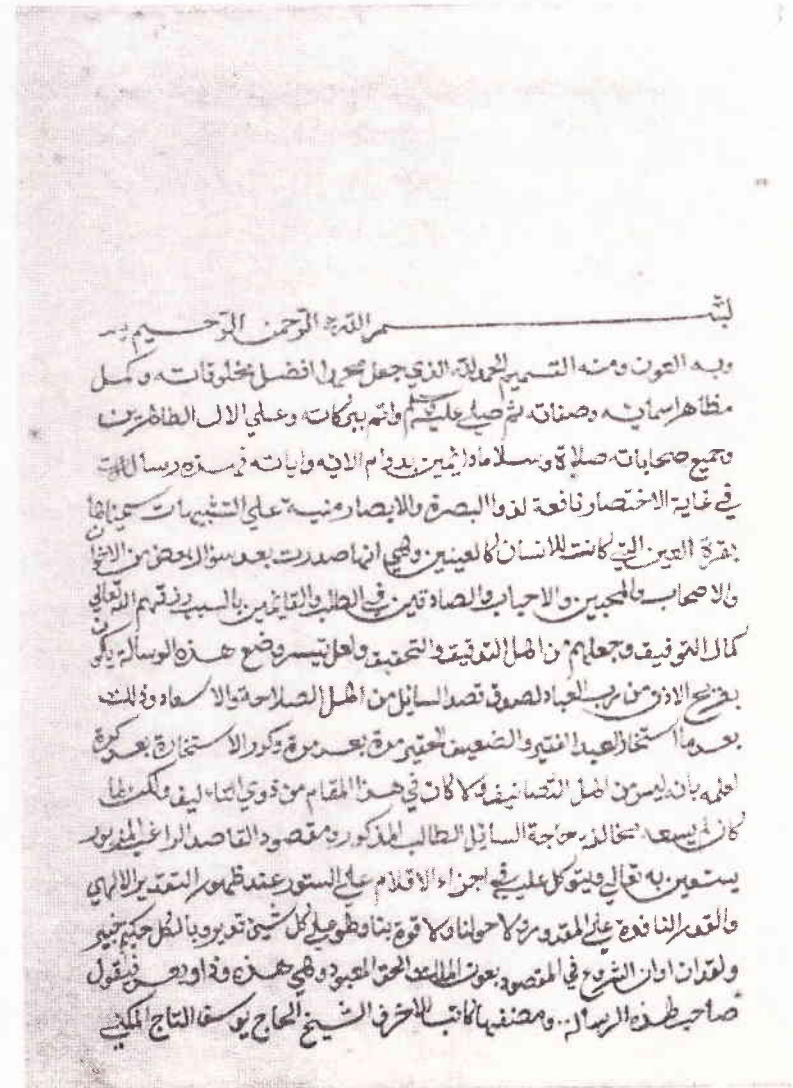 بسم الله الرحمن الرحيم
وبه العون ومنه التتميم الحمد لله الذي جعل محمدا افضل مخلوقاته وكمل
مظاهر اسمايه وصفاته ثم صلى عليه وسلم واتم ببركاته وعلى الال الطاهرين
وجميع صحاباته صلاة وسلاما دايمين بدوام الايه واياته فهذه رسالة
في غاية الاختصار نافعة لذوا البصرة والابصار منبية على التنبيهات سميناها
بقرة العين التي كانت للانسان كالعينين وهي انها صدرت بعد سؤال بعض من الاخوان
والاصحاب والمحبين والاحباب والصادقين في الطلب والقايمين بالسبب رزقهم الله تعالى
كمال التوفيق وجعلهم من اهل التوقيف والتحقيق ولعل تيسر وضع هذه الرسالة يكون
بفتح الاذن من رب العباد لصدق قصد السايل من اهل الصلاحة والاسعاد وذلك
بعد ما استخار العبد الفقير والضعيف الحقير مرة بعد مرة وكرر الاستخارة بعد كرة
لعلمه بان ليس من اهل التصانيف ولا كان في هذا المقام من ذوي التاءليف ولكن لما
كان لم يسعه مخالفة حاجة السايل الطالب المذكور ومقصود القاصد الراغب المزبور
يستعين به تعالى ويتوكل عليه في اجراء الاقلام على السطور عند ظهور التقدير الالهي
والقدر النافذة على المقدور ولا حولنا ولا قوة بنا وهو على كل شيئ قدير وبالكل حكيم خبير
ولقد ان اوان الشروع في المقصود بعون الملك الحق المعبود وهي هذه فيقول
صاحب هذه الرسالة ومصنفها كاتب الاحرف الشيخ الحاج يوسف التاج المكنى